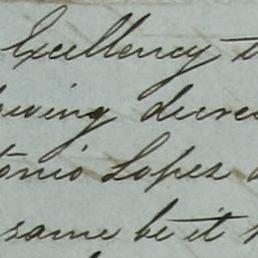 Excellency t
owing decree
tonio Lopez d
same be it k